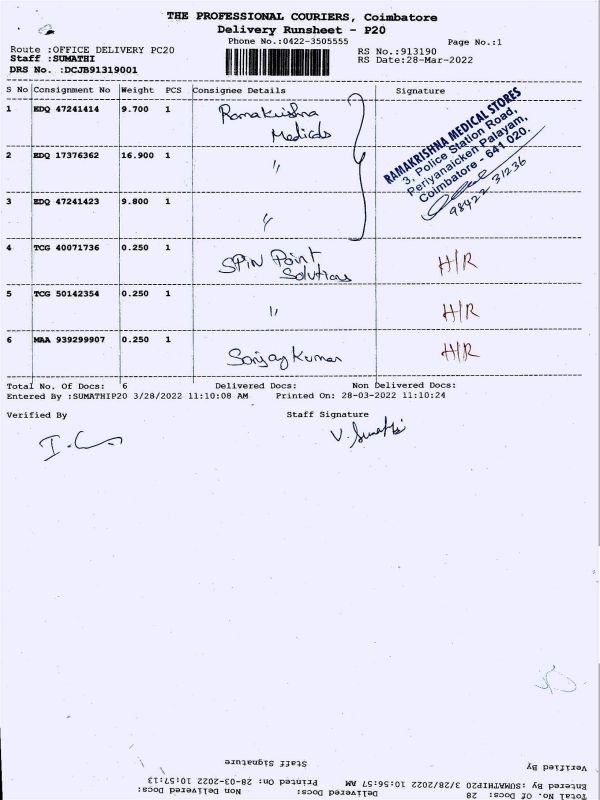 THE PROFESSIONAL COURIERS, Coimbatore
Delivery Runsheet - P20
Phone No.:0422-3505555
Page No.:1
Route :OFFICE DELIVERY PC20
RS No.:913190
Staff :SUMATHI
RS Date:28-Mar-2022
DRS No. :DCJB91319001
S No Consignment No Weight PCS Consignee Details Signature
1 EDQ 47241414 9.700 1 Ramakrishna Medicals
RAMAKRISHNA MEDICAL STORES
3, Police Station Road,
Periyanaicken Palayam,
Coimbatore - 641 020.
98422 31236
2 EDQ 17376362 16.900 1 "
3 EDQ 47241423 9.800 1 "
4 TCG 40071736 0.250 1 SPIN Point Solutions H/R
5 TCG 50142354 0.250 1 " H/R
6 MAA 939299907 0.250 1 Sanjay Kumar H/R
Total No. Of Docs: 6 Delivered Docs: Non Delivered Docs:
Entered By :SUMATHIP20 3/28/2022 11:10:08 AM Printed On: 28-03-2022 11:10:24
Verified By Staff Signature
V. Sumathi
Verified By Staff Signature
Entered By :SUMATHIP20 3/28/2022 10:56:57 AM Printed On: 28-03-2022 10:57:13
Total No. Of Docs: 28 Delivered Docs: Non Delivered Docs: